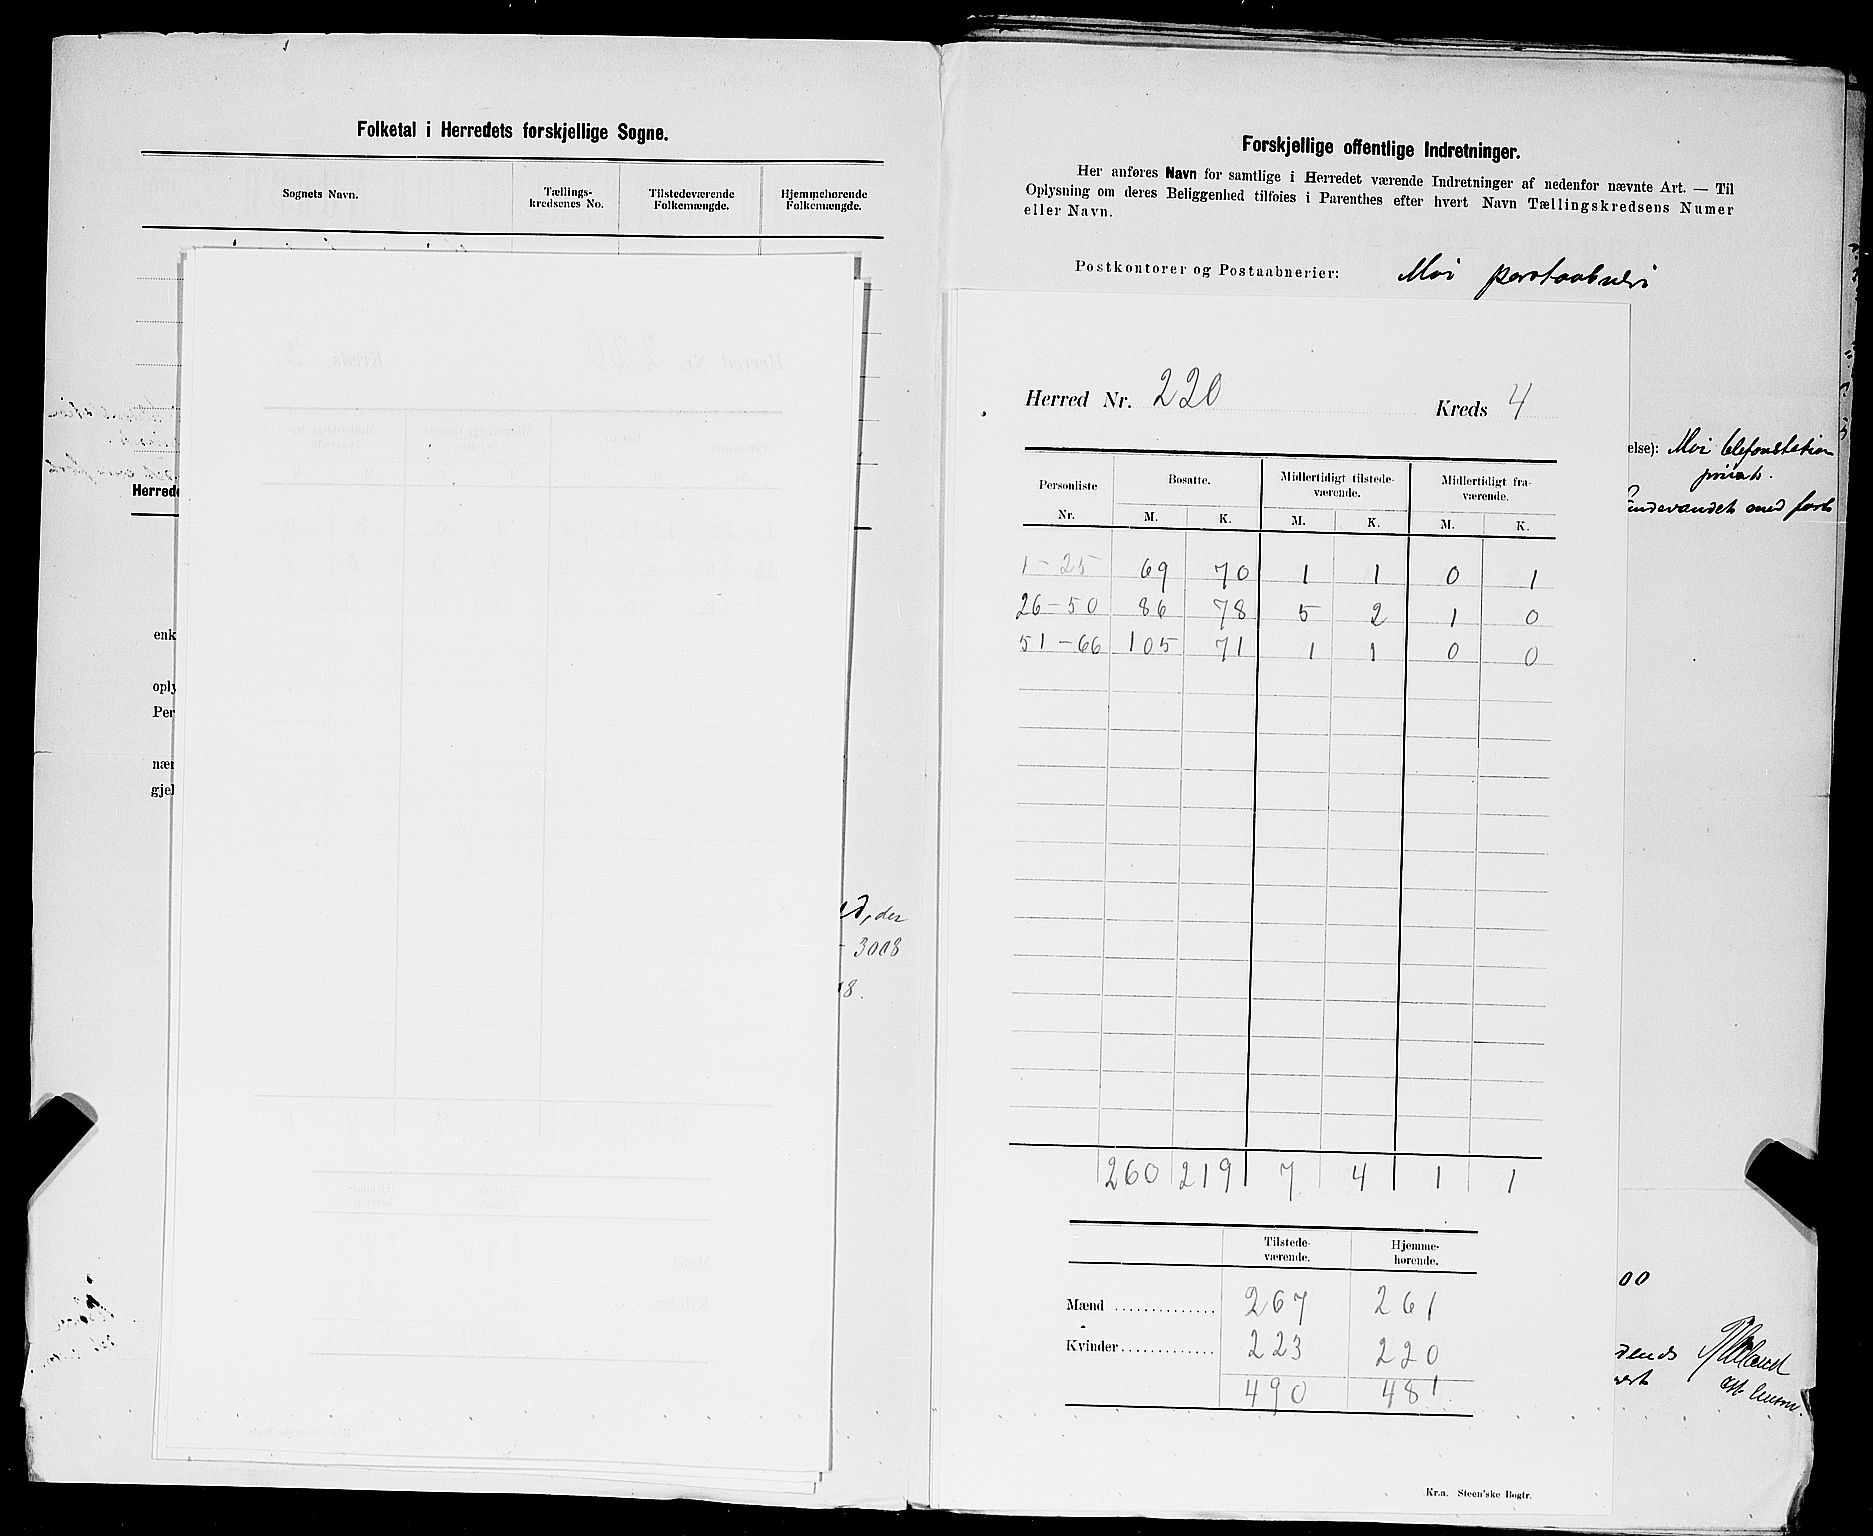 Folketal i Herredets forskjellige Sogne.
Sognets Navn. Tællings-kredsenes No. Tilstedeværende Folkemængde. Hjemmehørende Folkemængde.
Herred Nr. 220 Kreds
Herrede
enk
oply
Per
nær
gjel
d, der
- 3008
8.
Forskjellige offentlige Indretninger.
Her anføres Navn for samtlige i Herredet værende Indretninger af nedenfor nævnte Art. — Til
Oplysning om deres Beliggenhed tilføies i Parenthes efter hvert Navn Tællingskredsens Numer
eller Navn.
Postkontorer og Postaabnerier: Moi postaabneri
Herred Nr. 220 Kreds 4
else): Moi telefonstation
privat.
Personliste Bosatte. Midlertidigt tilstede-værende. Midlertidigt fra-værende.
Nr. M. K. M. K. M. K.
1-25 69 70 1 1 0 1
26-50 86 78 5 2 1 0
51-66 105 71 1 1 0 0
260 219 7 4 1 1
Tilstede-værende. Hjemme-hørende.
Mænd .............. 267 261
Kvinder............. 223 220
490 481
00
Kr.a. Steen'ske Bogtr.